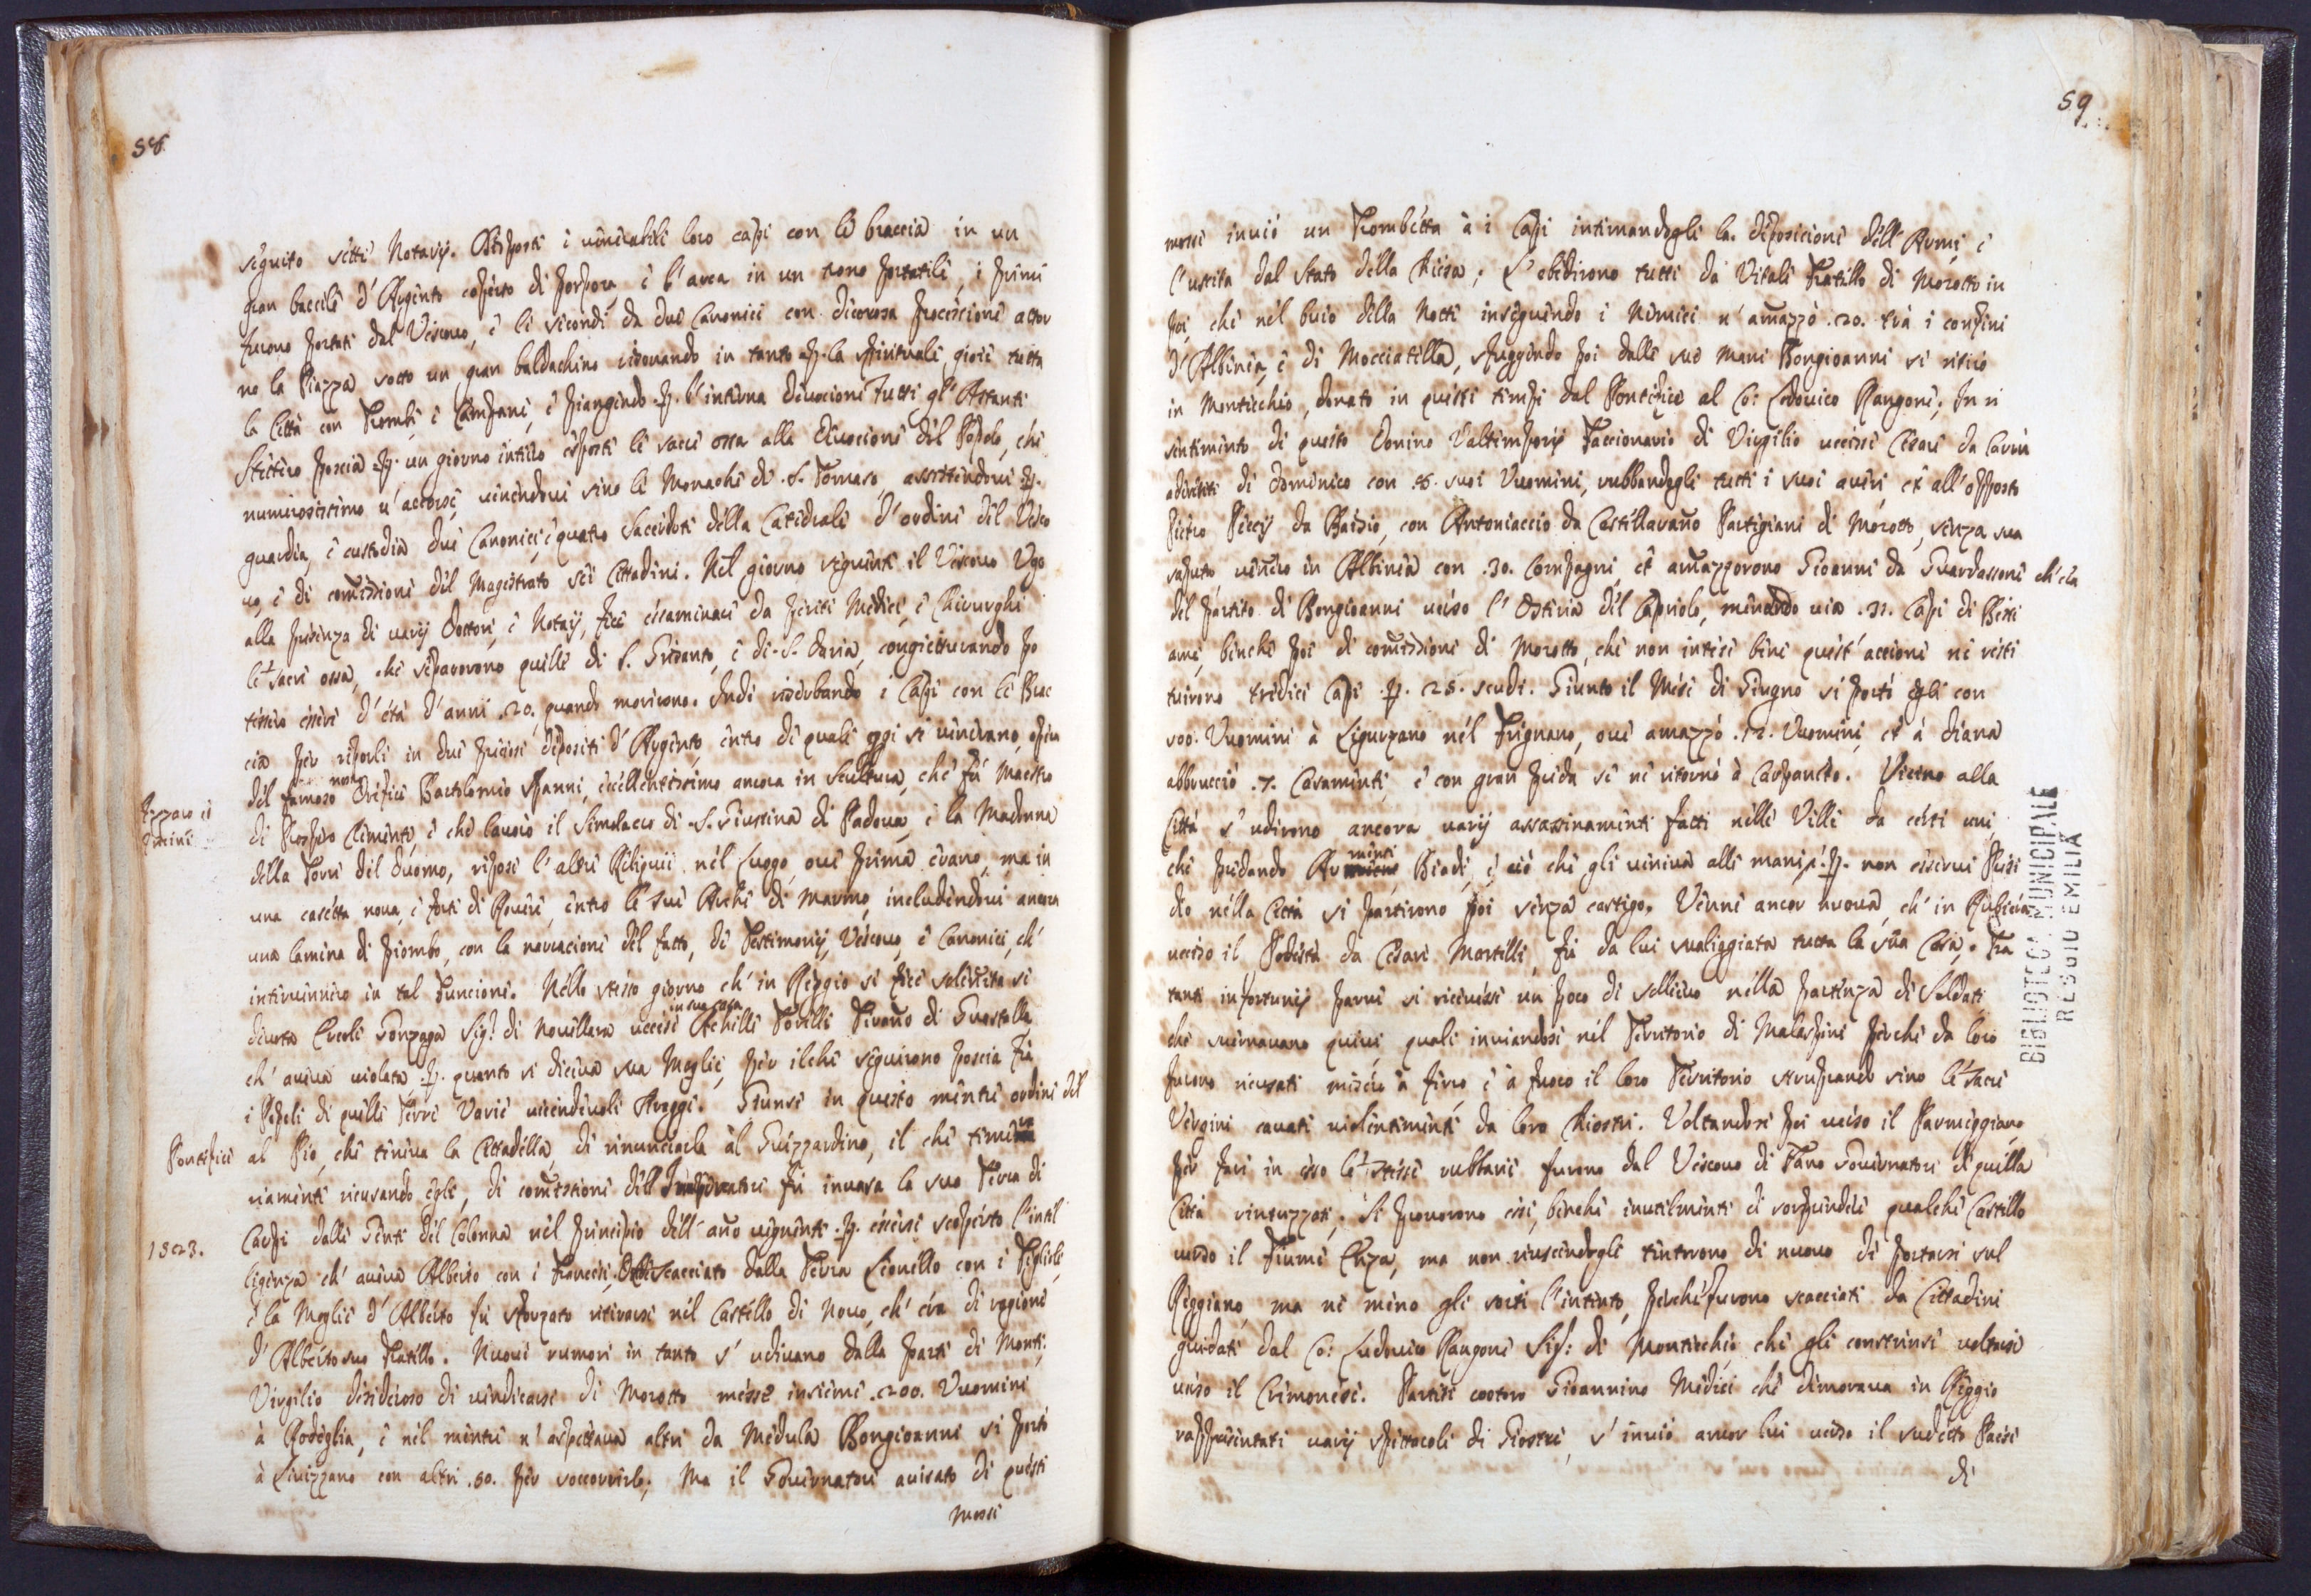 58
seguito sette Notarij. Risposti i venerabili loro capi con le braccia in un
gran baccile d'Argento coperto di porpora, e l'arca in un trono portatile, i primi
furono portati dal Vescovo, e li secondi da due Canonici con decorosa processione attor
no la Piazza sotto un gran baldachino risonando in tanto p. la spirituale gioie tutta
la Città con Trombe, e Campane, e piangendo p. l'interna divocione tutti gl'Astanti
Stettero poscia p. un giorno intiero esposti le sacre ossa alla Divocione del Popolo, che
numerosissimo v'accorse, venendovi sino li Monachi di S. Tomaso, assistendovi p.
guardia, e custodia due Canonici, e quatro Sacerdoti della Catedrale d'ordine del Vesco
vo, e di comissione del Magistrato sei Cittadini. Nel giorno seguente il Vescovo Ugo
alla presenza di varij Dottori, e Notaij, fece essaminare da periti Medici, e Chirurghi
le sacre ossa, che separorono quelle di S. Grisanto, e di S. Daria, congietturando po
tessero essere d'età d'anni .20. quando morirono. Indi riserbando i Capi con le Brac
cia per riporli in due preciosi depositi d'Argento, entro di quali oggi si venerano, opera
del famoso nostro Orefice Bartolomeo Spanni, eccellentissimo ancora in Scultura, che fù Maestro
di Prospero Clemente, e che lavorò il Simolacro di S. Giustina di Padova, e la Madonna
della Torre del Duomo, ripose l'altre Reliquie nel Luogo, ove prima erano, ma in
una cassetta nova, e forte di Rovere, entro le sue Arche di Marmo, includendovi ancora
una lamina di piombo, con la narracione del fatto, di Testimonij, Vescovo, e Canonici, ch'
intervennero in tal Funcione. Nello stesso giorno ch'in Reggio si fece solennità si
divota Ercole Gonzaga Sig.r di Novellara uccise in sua casa Achille Torelli Tiranno di Guastalla
ch'aveva violata p. quanto si diceva sua Moglie, per il che seguirono poscia frà
i Popoli di quelle Terre Varie vicendevoli Straggi. Giunse in questo mentre ordine del
Pontefice al Pio, che teneva la Cittadella, di rinunciarla al Guizzardino, il che teme
riamente ricusando egli, di comissione dell'Imperatore fù invasa la sua Terra di
1523. Carpi dalle Genti del Colonna nel principio dell'anno vegnente p. essersi scoperto l'intel
ligenza ch'aveva Alberto con i Francesi. Discacciato dalla Terra Lionello con i Figlioli,
e la Moglie d'Alberto fù sforzato ritirarsi nel Castello di Novo, ch'era di ragione
d'Alberto suo Fratello. Nuovi rumori in tanto s'udivano dalla parte di Monte:
Virgilio desideroso di vendicarsi di Morotto messe insieme .200. Vuomini
à Rodeglia, e nel mentre n'aspettava altri da Medula Bongioanni si portò
à Livizzano con altri .50. per soccorrerlo; Ma il Governatore avisato di queste
mosse

59
mosse inviò un Trombetta à i Capi intimandogli la deposicione dell'Armi, e
l'uscita dal Stato della Chiesa; L'obedirono tutti da Vitale Fratello di Morotto in
poi che nel buio della Notte inseguendo i Nemici n'amazzò .20. trà i confini
d'Albinea, e di Mocciatella, sfuggendo poi dalle sue mani Bongioanni si ritirò
in Montecchio, donato in questi tempi dal Pontefice al Co: Lodovico Rangone; In ri
sentimento di questo Donino Valtemperij Faccionario di Virgilio uccise Cesare da Caviù
aderente di Domenico con .8. suoi Vuomini, rubbandogli tutti i suoi averi, et all'opposto
Pietro Peccij da Baisio, con Antoniaccio da Castellavano Partigiani di Morotto, senza sua
saputa venero in Albinea con .30. Compagni, et amazzorono Gioanni da Guardassone ch'era
del partito di Bongioanni verso l'Osteria del Capriolo, menando via .31. Capi di Besti
ame, benche poi di comissione di Morotto, che non intese bene quest'accione ne resti
tuirono tredici Capi p. 25. scudi. Giunto il Mese di Giugno si portò egli con
500. Vuomini à Ligurzano nel Frignano, ove amazzò .12. Vuomini, et à Diana
abbrucciò .7. Casamenti, e con gran preda se ne ritornò à Carpaneto. Vicino alla
Città s'udirono ancora varij assassinamenti fatti nelle Ville da certi uni
che predando Armenti Biade, e ciò che gli veniva alle mani, p. non esservi Presi
dio nella Città si partirono poi senza castigo. Venne ancor nuova, ch'in Rubiera
ucciso il Podestà da Cesare Martelli, fù da lui svaliggiata tutta la sua Casa. Frà
tanti infortunij parve si ricevesse un poco di sollievo nella partenza di Soldati
che svernavano quivi, quali inviandosi nel Territorio di Malaspine perche da loro
furono ricusati misero à ferro e à fuoco il loro Territorio strupando sino le Sacre
Vergini cavate violentimente da loro Chiostri. Voltandosi poi verso il Parmeggiano
per fare in esso le stesse rubbarie furono dal Vescovo di Fano Governatore di quella
Città rintuzzati. Si provorono essi, benche inutilmente di sorprendere qualche Castello
verso il Fiume Enza, ma non riuscendogli tentorono di nuovo di portarsi sul
Reggiano, ma ne meno gli sortì l'intento, perche furono scacciati da Cittadini
guidati dal Co: Ludovico Rangone Sig: di Montecchio che gli constrinse voltarsi
verso il Cremonese. Partiti costoro Gioannino Medici che dimorava in Reggio
rappresentati varij spettacoli di Giostre, s'inviò ancor lui verso il sudetto Paese
di
BIBLIOTECA MUNICIPALE
REGGIO EMILIA